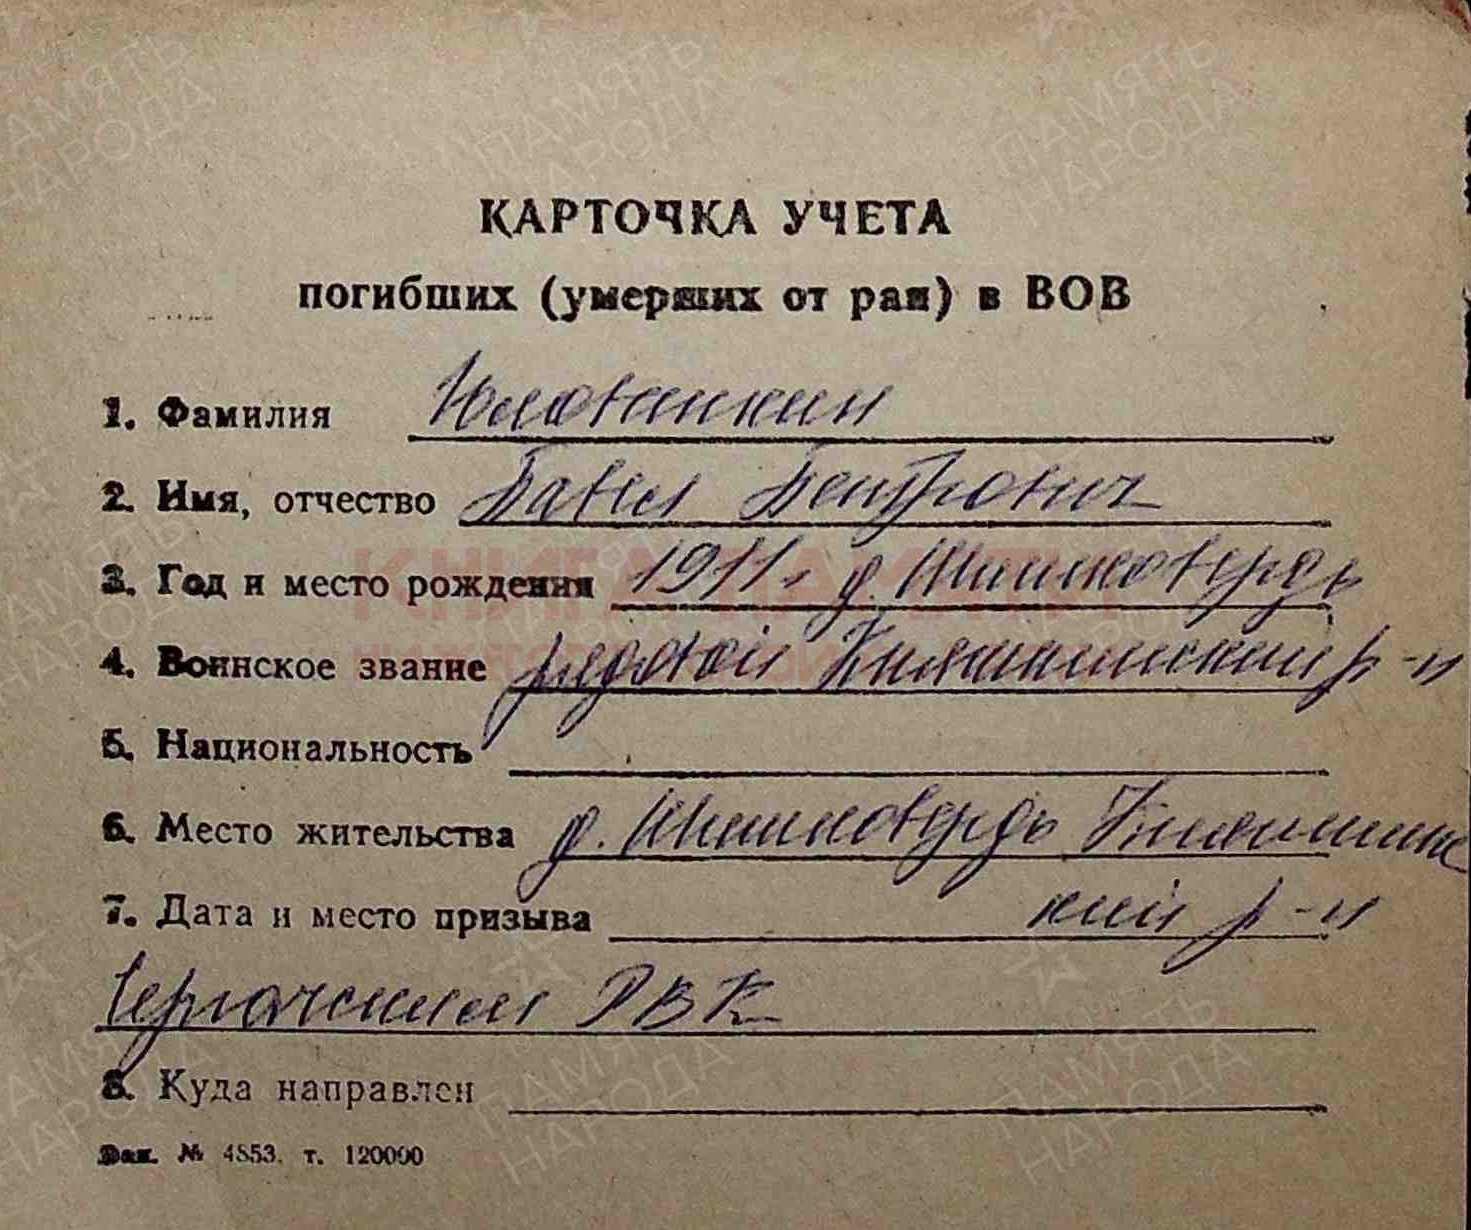 КАРТОЧКА УЧЕТА
погибших (умерших от ран) в ВОВ
1. Фамилия
2. Имя, отчество Павел Петрович
3. Год и место рождения 1911г д. Шишковердь
4. Воинское звание рядовой Княгининский р-н
5. Национальность
6. Место жительства д. Шишковердь Княгининс
7. Дата и место призыва кий р-н
Сергачским РВК
8. Куда направлен
Зак. № 4853. т. 120000
ПАМЯТЬ
НАРОДА
КНИГА ПАМЯТИ